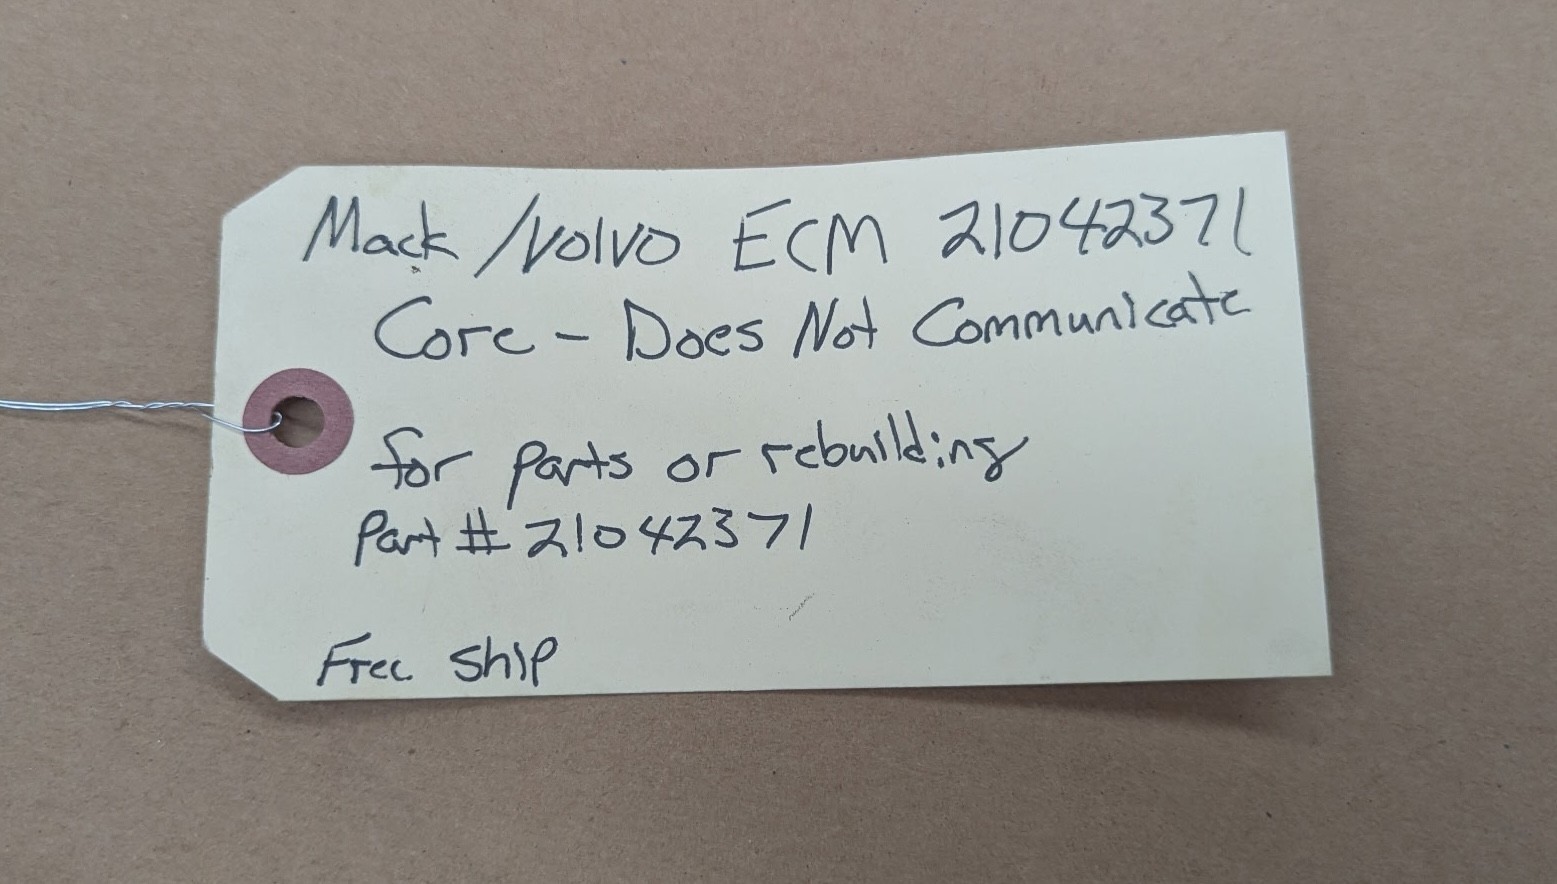 Mack/Volvo ECM 21042371
Core - Does Not Communicate
for parts or rebuilding
Part # 21042371
Free ship